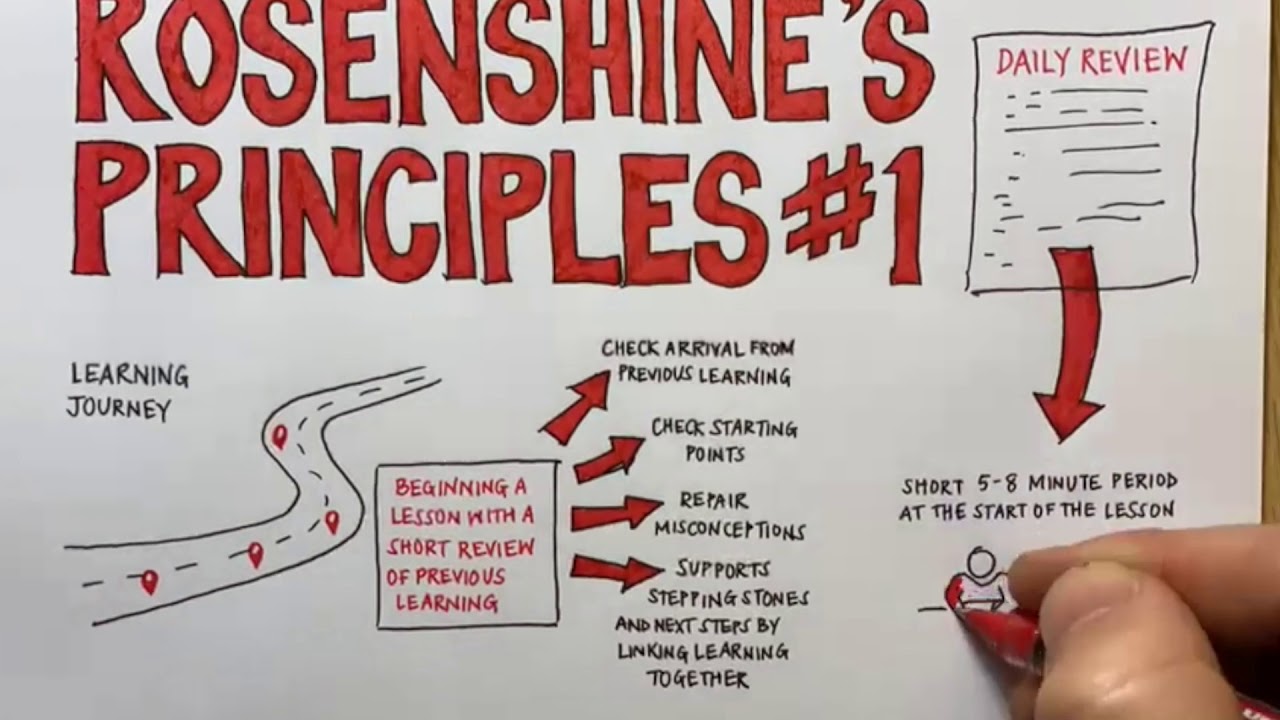 ROSENSHINE'S
PRINCIPLES #1
DAILY REVIEW
LEARNING
JOURNEY
BEGINNING A
LESSON WITH A
SHORT REVIEW
OF PREVIOUS
LEARNING
CHECK ARRIVAL FROM
PREVIOUS LEARNING
CHECK STARTING
POINTS
REPAIR
MISCONCEPTIONS
SUPPORTS
STEPPING STONES
AND NEXT STEPS BY
LINKING LEARNING
TOGETHER
SHORT 5-8 MINUTE PERIOD
AT THE START OF THE LESSON